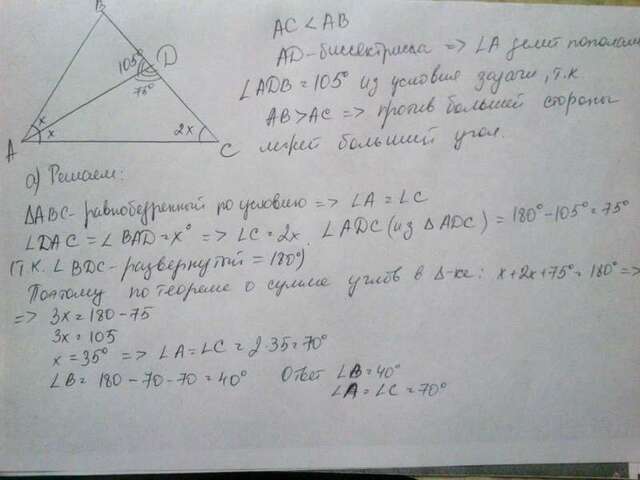 B
AC < AB
D
AD-биссектриса => ∠A делит пополам
105°
75°
∠ADB = 105° из условия задачи, т.к
AB > AC => против большей стороны
лежит больший угол.
x
x
2x
A
C
а) Решаем:
△ABC - равнобедренный по условию => ∠A = ∠C
∠DAC = ∠BAD = x° => ∠C = 2x. ∠ADC (из △ADC) = 180° - 105° = 75°
(т.к. ∠BDC - развернутый = 180°)
Поэтому по теореме о сумме углов в △-ке: x + 2x + 75° = 180° =>
=> 3x = 180 - 75
3x = 105
x = 35° => ∠A = ∠C = 2·35 = 70°
∠B = 180 - 70 - 70 = 40° Ответ ∠B = 40°
∠A = ∠C = 70°